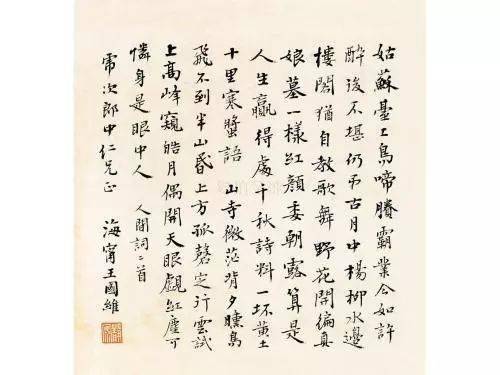 姑蘇臺上烏啼賸霸業今如許
醉後不堪仍弔古月中楊柳水邊
樓閣猶自教歌舞 野花開徧真
娘墓一樣紅顏委朝露算是
人生贏得處千秋詩料一坏黃土
十里寒螿語 山寺微茫背夕曛鳥
飛不到半山昏上方孤磬定行雲試
上高峰窺皓月偶開天眼覷紅塵可
憐身是眼中人 人間詞二首
次郎中仁兄正
海甯王國維